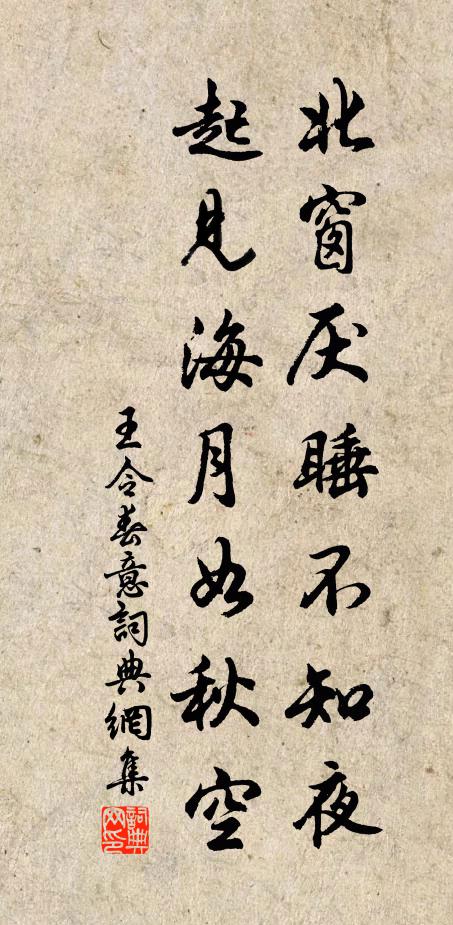 北窗厌睡不知夜
起见海月如秋空
王令春意詞典網集
詞典网印